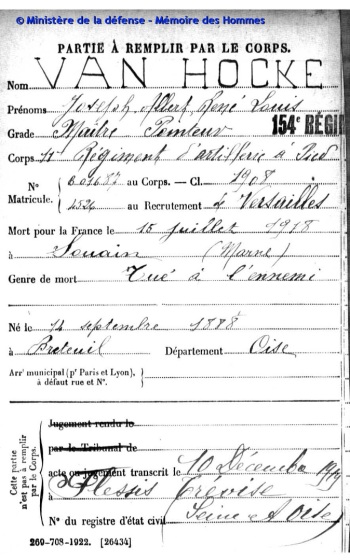 © Ministère de la défense - Mémoire des Hommes
PARTIE À REMPLIR PAR LE CORPS.
Nom VAN HOCKE
Prénoms Joseph Albert René Louis
Grade Maître Pointeur 154e RÉGI
Corps Régiment d'artillerie à Pied
N° Matricule. au Corps. — Cl. 1908
4526 au Recrutement à Versailles
Mort pour la France le 15 juillet 1918
à Souain (Marne)
Genre de mort Tué à l'ennemi
Né le 12 septembre 1888
à Breteuil Département Oise
Arrt municipal (pr Paris et Lyon),
à défaut rue et N°.
Cette partie n'est pas à remplir par le Corps.
Jugement rendu le
par le Tribunal de
acte ou jugement transcrit le 10 Décembre
à Plessis Trévise
N° du registre d'état civil Seine & Oise
269-708-1922. [26434]